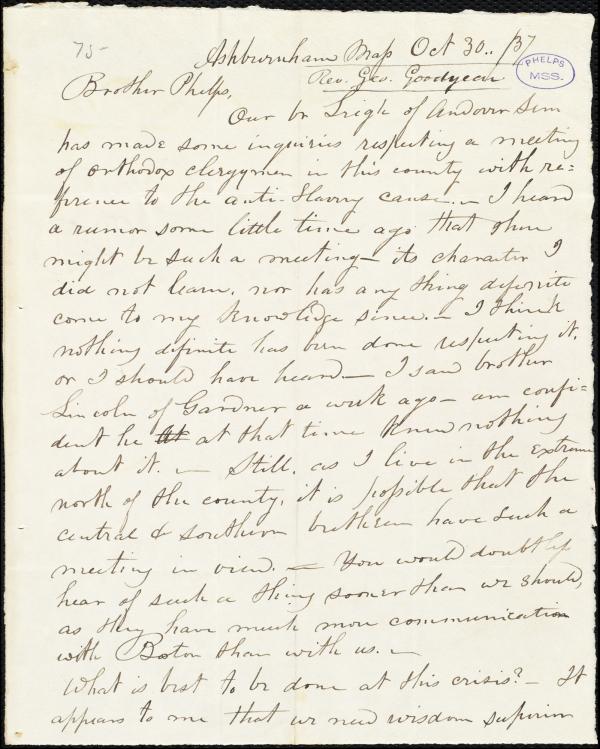 75-
Ashburnham Mass Oct 30../37
Rev. Geo. Goodyear
PHELPS
MSS.
Brother Phelps,
Our br of Andover Sem
has made some inquiries respecting a meeting
of orthodox clergymen in this county with re=
ference to the anti-slavery cause.— I heard
a rumor some little time ago that there
might be such a meeting— its character I
did not learn, nor has any thing definite
come to my knowledge since.— I think
nothing definite has been done respecting it,
or I should have heard— I saw brother
Lincoln of Gardner a week ago— am confi=
dent he at that time knew nothing
about it.— Still, as I live in the extreme
north of the county, it is possible that the
central & southern brethren have such a
meeting in view.— You would doubtless
hear of such a thing sooner than we should,
as they have much more communication
with Boston than with us.—
What is best to be done at this crisis?— It
appears to me that we need wisdom superior